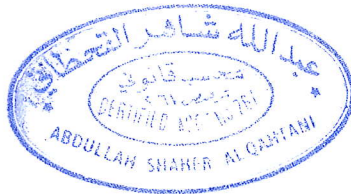 عبدالله شاهر القحطاني
محاسب قانوني
ترخيص ٤٦١
CERTIFIED
ABDULLAH SHAHER ALQAHTANI